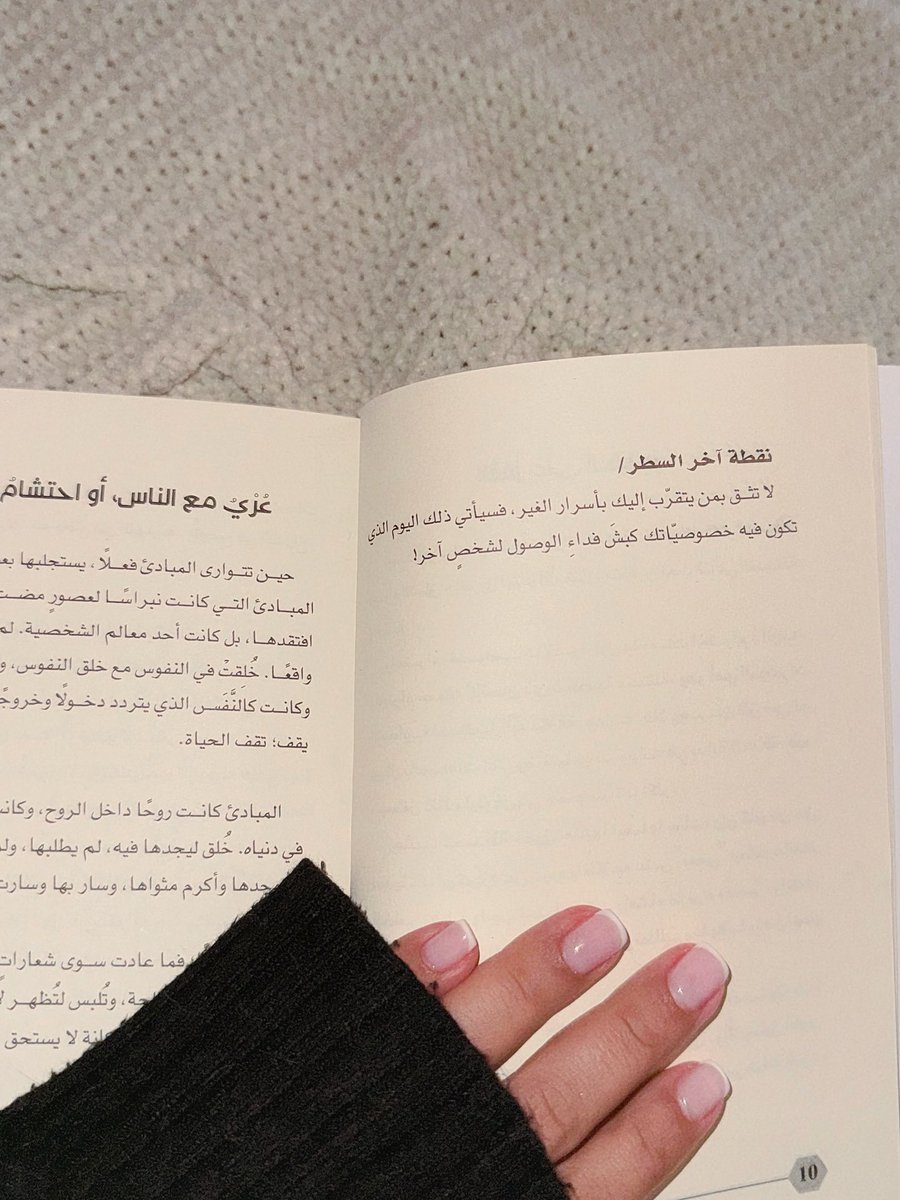 نقطة آخر السطر/
لا تثـق بمن يتقرّب إليك بأسرار الغير، فسيأتي ذلك اليوم الذي
تكون فيه خصوصيّاتك كبشَ فداءِ الوصول لشخصٍ آخر!
10
عُرْيُ مع الناس، أو احتشامُ
حيـن تتـوارى المبادئ فعـلًا، يستجلبها
المبـادئ التـي كانـت نبراسًـا لعصورٍ
افتقدهـا، بل كانت أحد معالم الشخصية.
واقعًـا. خُلِقتْ في النفوس مع خلق النفوس،
وكانـت كالنَّفَـس الذي يتردد دخـولًا
يقف؛ تقف الحياة.
المبادئ كانـت روحًا داخل الروح،
في دنياه. خُلق ليجدها فيه، لم يطلبها،
وأكرم مثواها، وسار بها
فما عادت سوى شعارات
وتُلبس لتُظهـر
لا يستحق